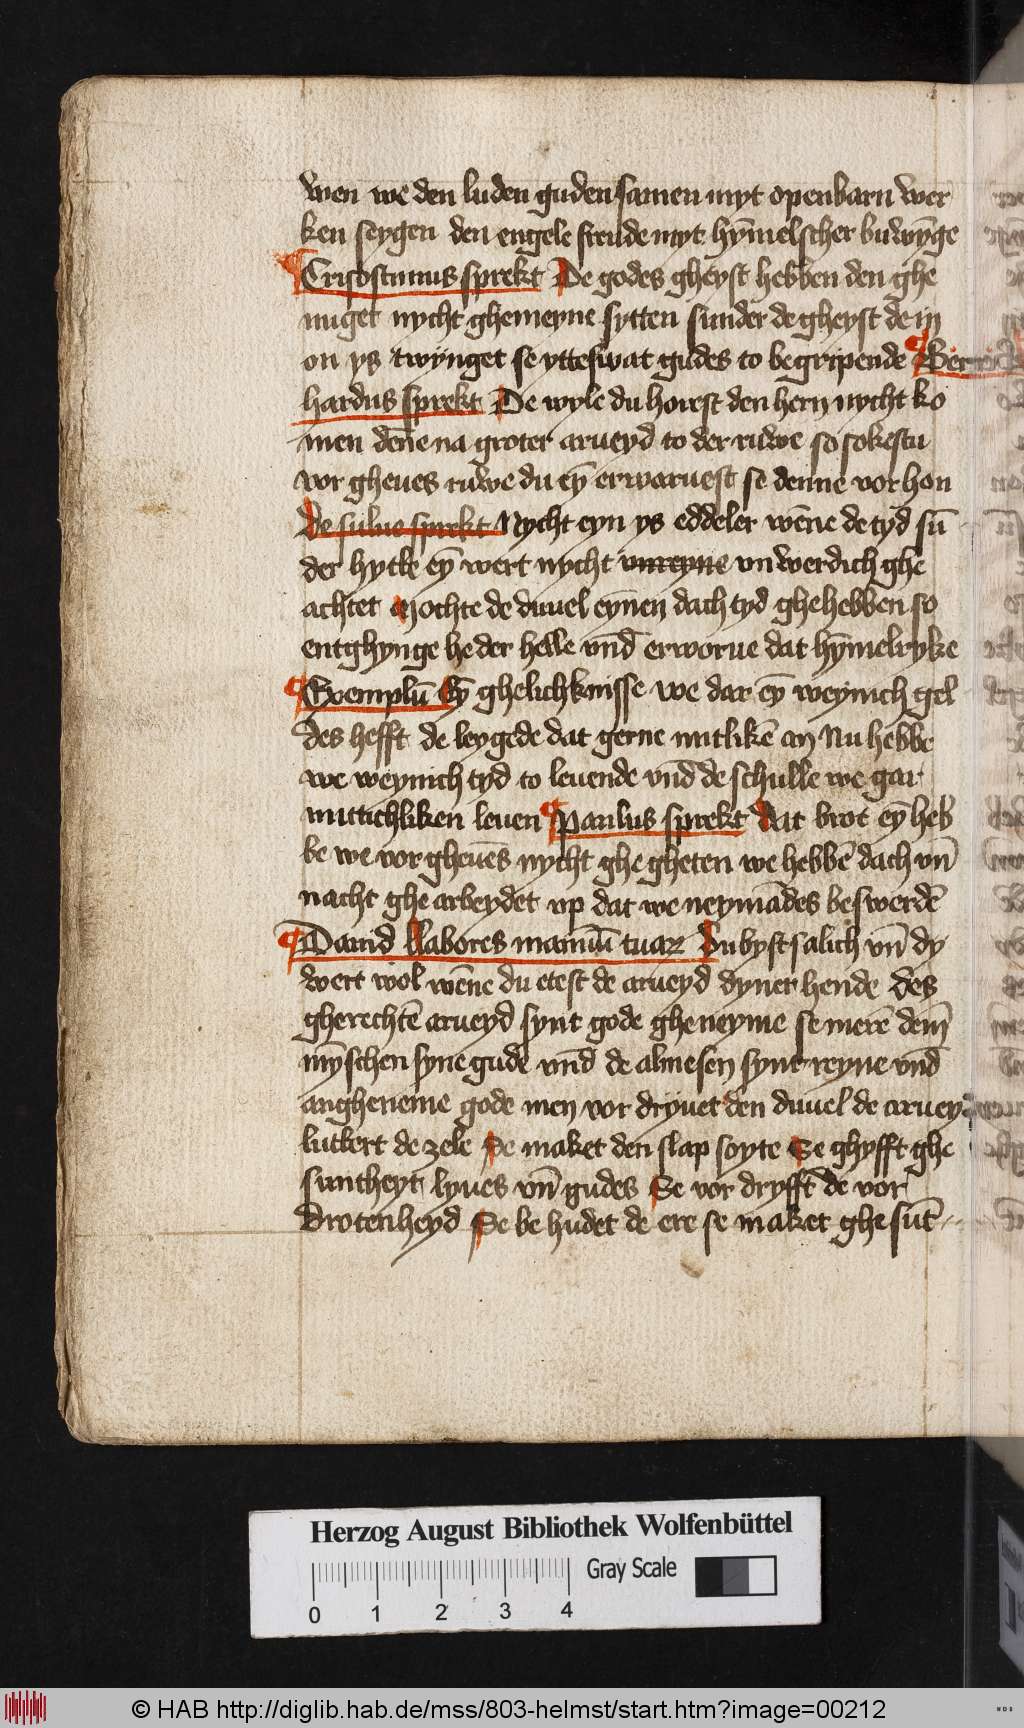 wen we den luden guden samen myt openbarn wer
ken seygen den engele freude myt hȳmelscher buwȳge
¶ Crisostimus sprekt De godes gheyst hebben den ghe
nuget nycht ghemeyne sytten sunder de gheyst de in
on ys twynget se ytteswat gudes to begripende ¶ Ber
hardus sprekt De wyle du horest den hern nycht ko
men den̄e na groter arueyd to der ruwe so sokestu
vor gheues ruwe du ey̅ erwaruest se denne vor hon
De sulue sprekt Nycht eyn ys eddeler wēne de tyd sū
der hytke ey̅ wert nycht vnreyne vnwerdich ghe
achtet Mochte de duuel eynen dach tyd ghehebben so
entghynge he der helle vn̄d erworue dat hȳmelryke
¶ Exemplū Ey̅ ghelichknisse we dar ey̅ weynich gel
des hefft de leygede dat gerne nutlikē an Nu hebbe
we weynich tyd to leuende vn̄d de schulle we gar
nuttichliken leuen ¶ Paulus sprekt Dat brot ey̅ heb
be we vorgheuēs nycht ghegheten we hebbē dach vn̄
nacht ghe arbeydet vp dat we neymādes beswerdē
¶ Dauid Labores manuū tuaꝝ Du byst salich vn̄ dy
wert wol wēne du etest de arueyd dyner hende des
gherechtē arueyd synt gode gheneyme se merē dem̄
mȳschen syne gude vn̄d de almesen synt reyne vn̄d
angheneme gode men vor dryuet den duuel de arueyd
lutkert de zele Se maket den slap soyte Se ghyfft ghe
suntheyt lyues vn̄ gudes Se vor dryfft de vor
drotenheyd Se be hudet de ere se maket ghe sūt
Herzog August Bibliothek Wolfenbüttel
Gray Scale
0 1 2 3 4
© HAB http://diglib.hab.de/mss/803-helmst/start.htm?image=00212